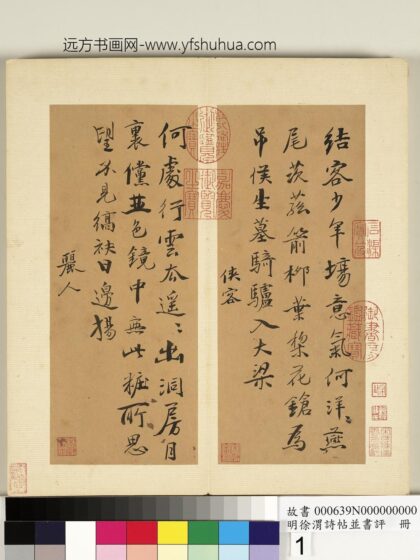 远方书画网-www.yfshuhua.com
結客少年場意氣何洋〻燕
尾茨菇箭柳葉梨花鎗為
吊侯生墓騎驢入大梁
俠客
何處行雲太遥〻出洞房月
裏儻並色鏡中無此粧所思
望不見縞袂日邊揚
麗人
故書 000639N000000000
明徐渭詩帖並書評 冊
1